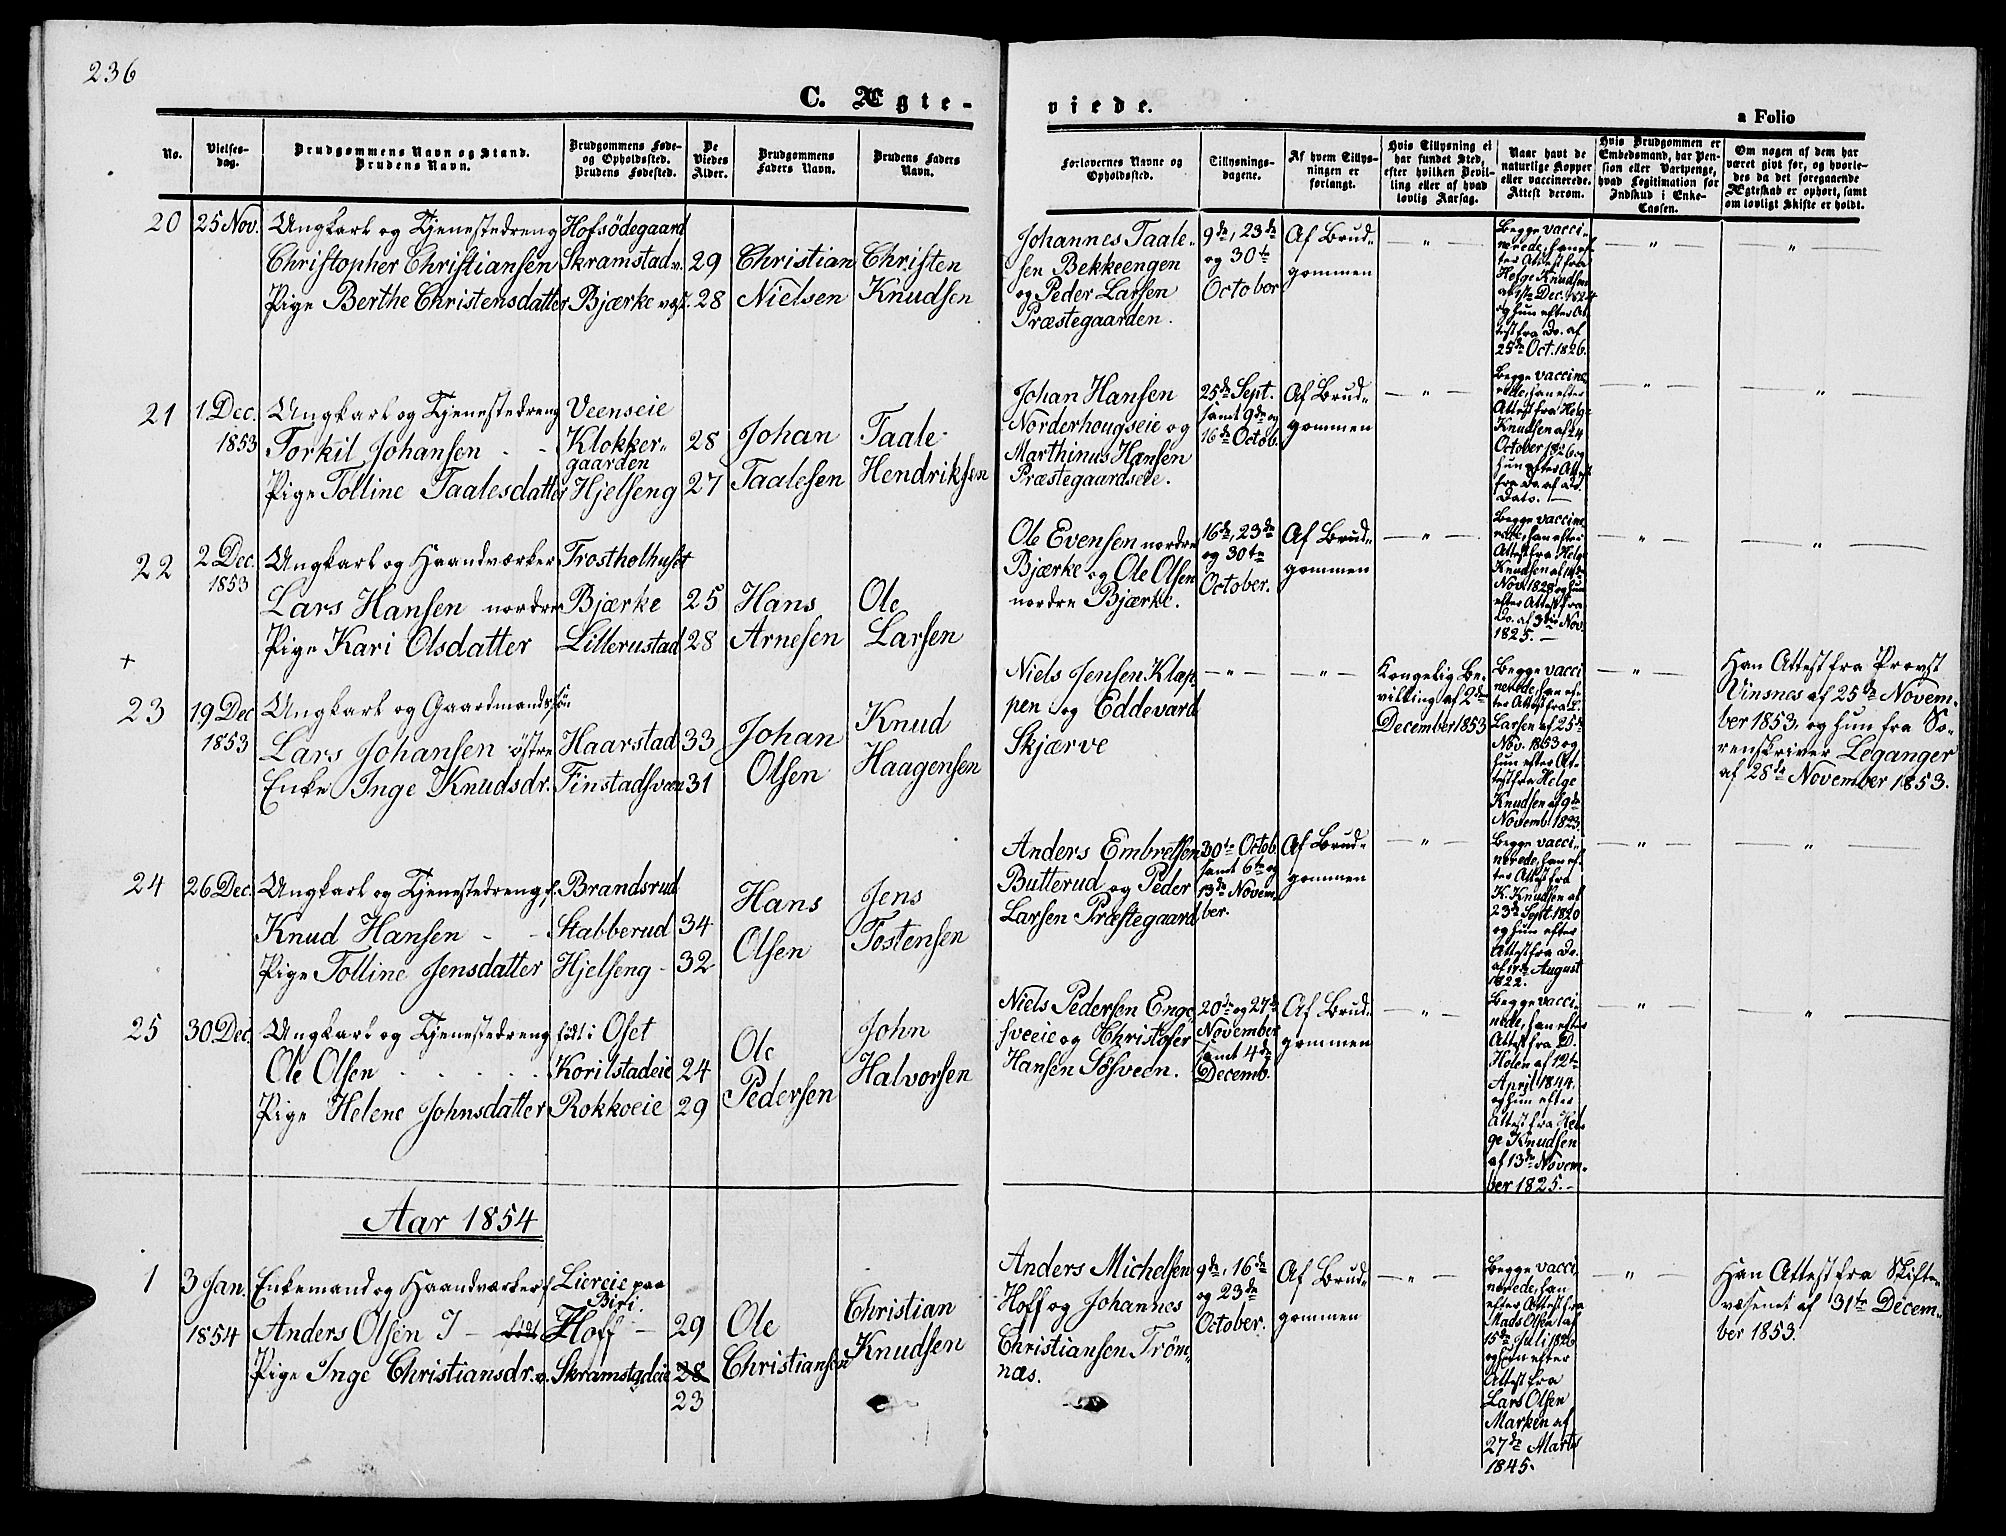 236
C. Ægte-
No.
Vielses-
dag.
Brudgommens Navn og Stand.
Brudens Navn.
Brudgommens Føde-
og Opholdssted.
Brudens Fødested.
De
Viedes
Alder.
Brudgommens
Faders Navn.
Brudens Faders
Navn.
20 25 Nov. Ungkarl og Tjenestedreng Hofsödegaard
Christopher Christiansen Skramstad v. 29 Christian Christen
Pige Berthe Christensdatter Bjærke vest. 28 Nielsen Knudsen
21 1 Dec. Ungkarl og Tjenestedreng Veenseie
1853 Torkil Johansen - - Klokker- 28 Johan Taale
gaarden
Pige Tolline Taalesdatter Hjelseng 27 Taalesen Hendriksen
22 2 Dec. Ungkarl og Haandværker Trostholhuset
1853
Lars Hansen nordre Bjærke 25 Hans Ole
Pige Kari Olsdatter Lillerustad 28 Arnesen Larsen
+
23 19 Dec Ungkarl og Gaardmandssön
1853 Lars Johansen östre Haarstad 33 Johan Knud
Enke Inge Knudsdr. Finstadsvæen 31 Olsen Haagensen
24 26 Dec. Ungkarl og Tjenestedreng f. Brandsrud
Knud Hansen - - Stabberud 34 Hans Jens
Pige Tolline Jensdatter Hjelseng - 32 Olsen Tostensen
25 30 Dec. Ungkarl og Tjenestedreng födt i Oset
Ole Olsen . . . . . Korilstadeie 24 Ole John
Pige Helene Johnsdatter Rokkoeie 29 Pedersen Halvorsen
Aar 1854
1 3 Jan. Enkemand og Haandværker f. Liereie paa
Biri.
1854 Anders Olsen I - födt Hoff - 29 Ole Christian
Pige Inge Christiansdr. v. Skramstadeie 28 Christiansen Knudsen
23
viede.
a Folio
Forlovernes Navne og
Opholdssted.
Tillysnings-
dagene.
Af hvem Tillys-
ningen er
forlangt.
Hvis Tillysning ei
har fundet Sted,
efter hvilken Bevil-
ling eller af hvad
lovlig Aarsag.
Naar havt de
naturlige Kopper
eller vaccinerede.
Attest derom.
Hvis Brudgommen er
Embedsmand, har Pen-
sion eller Vartpenge,
hvad Legitimation for
Indskud i Enke-
Cassen.
Om nogen af dem har
været givt før, og hvorle-
des da det foregaaende
Ægteskab er ophørt, samt
om lovligt Skifte er holdt.
Johannes Taale-
sen Bekkeengen
og Peder Larsen
Præstegaarden.
9de, 23de
og 30te
October
Af Brud-
gommen
— " —
Begge vacci-
nerede, han ef-
ter Attest fra
Helge Knudsen
af 1ste Dec. 1824
og hun efter At-
test fra Do. af
25de Oct. 1826.
— " —
"
Johan Hansen
Norderhougseie og
Marthinus Hansen
Præstegaardseie.
25de Sept.
samt 9de og
16de Octob.
Af Brud-
gommen
— " —
Begge vaccine-
rede, han efter
Attest fra Helge
Knudsen af 24
October 1826 og
hun efter Attest
fra Do. af s.d.
Dato. —
— " —
"
Ole Evensen nordre
Bjærke og Ole Olsen
nordre Bjærke.
16de, 23de
og 30te
October.
Af Brud-
gommen
— " —
Begge vaccine-
rede, han efter
Attest fra Helge
Knudsen af 14de
Nov. 1828 og hun
efter Attest fra
Do. af 3die Nov.
1825. —
— " —
"
Niels Jensen Klæp-
pen og Eddevard
Skjærve
— " —
— " —
Kongelig Be-
villing af 2de
December 1853
Begge vacci
nerede, han ef-
ter Attest fra L.
Larsen af 25de
Nov. 1853 og
hun efter At-
test fra Helge
Knudsen af 9de
Novemb. 1823.
— " —
Han Attest fra Provst
Vinsnes af 25de Novem-
ber 1853, og hun fra So-
renskriver Leganger
af 28de November 1853.
Anders Embretsen
Butterud og Peder
Larsen Præstegaard
30te Octob.
samt 6te og
13de Novem-
ber.
Af Brud-
gommen
— " —
Begge vacci-
nerede, han ef-
ter Attest fra
K. Knudsen af
23de Sept. 1820
og hun efter
Attest fra Do.
af 17de August
1822.
— " —
"
Niels Pedersen Enge-
sveeie og Christofer
Hansen Söfveen.
20de og 27de
November
samt 4de
Decemb.
Af Brud-
gommen
— " —
Begge vacci-
nede, han efter
Attest fra D.
Holen af 12te
April 1844.
og hun efter
Attest fra Hel-
ge Knudsen
af 13de Novem-
ber 1825. —
— " —
"
Anders Michelsen
Hoff og Johannes
Christiansen Tröm-
næs.
9de, 16de
og 23de
October.
Af Brud-
gommen
— " —
Begge vacci,
nerede, han
efter Attest fra
Mads Olsen af
15de Juli 1826
og hun efter
Attest fra
Lars Olsen
Marken af
27de Marts
1845.
— " —
Han Attest fra Skifte-
væsenet af 31te Decem-
ber 1853.